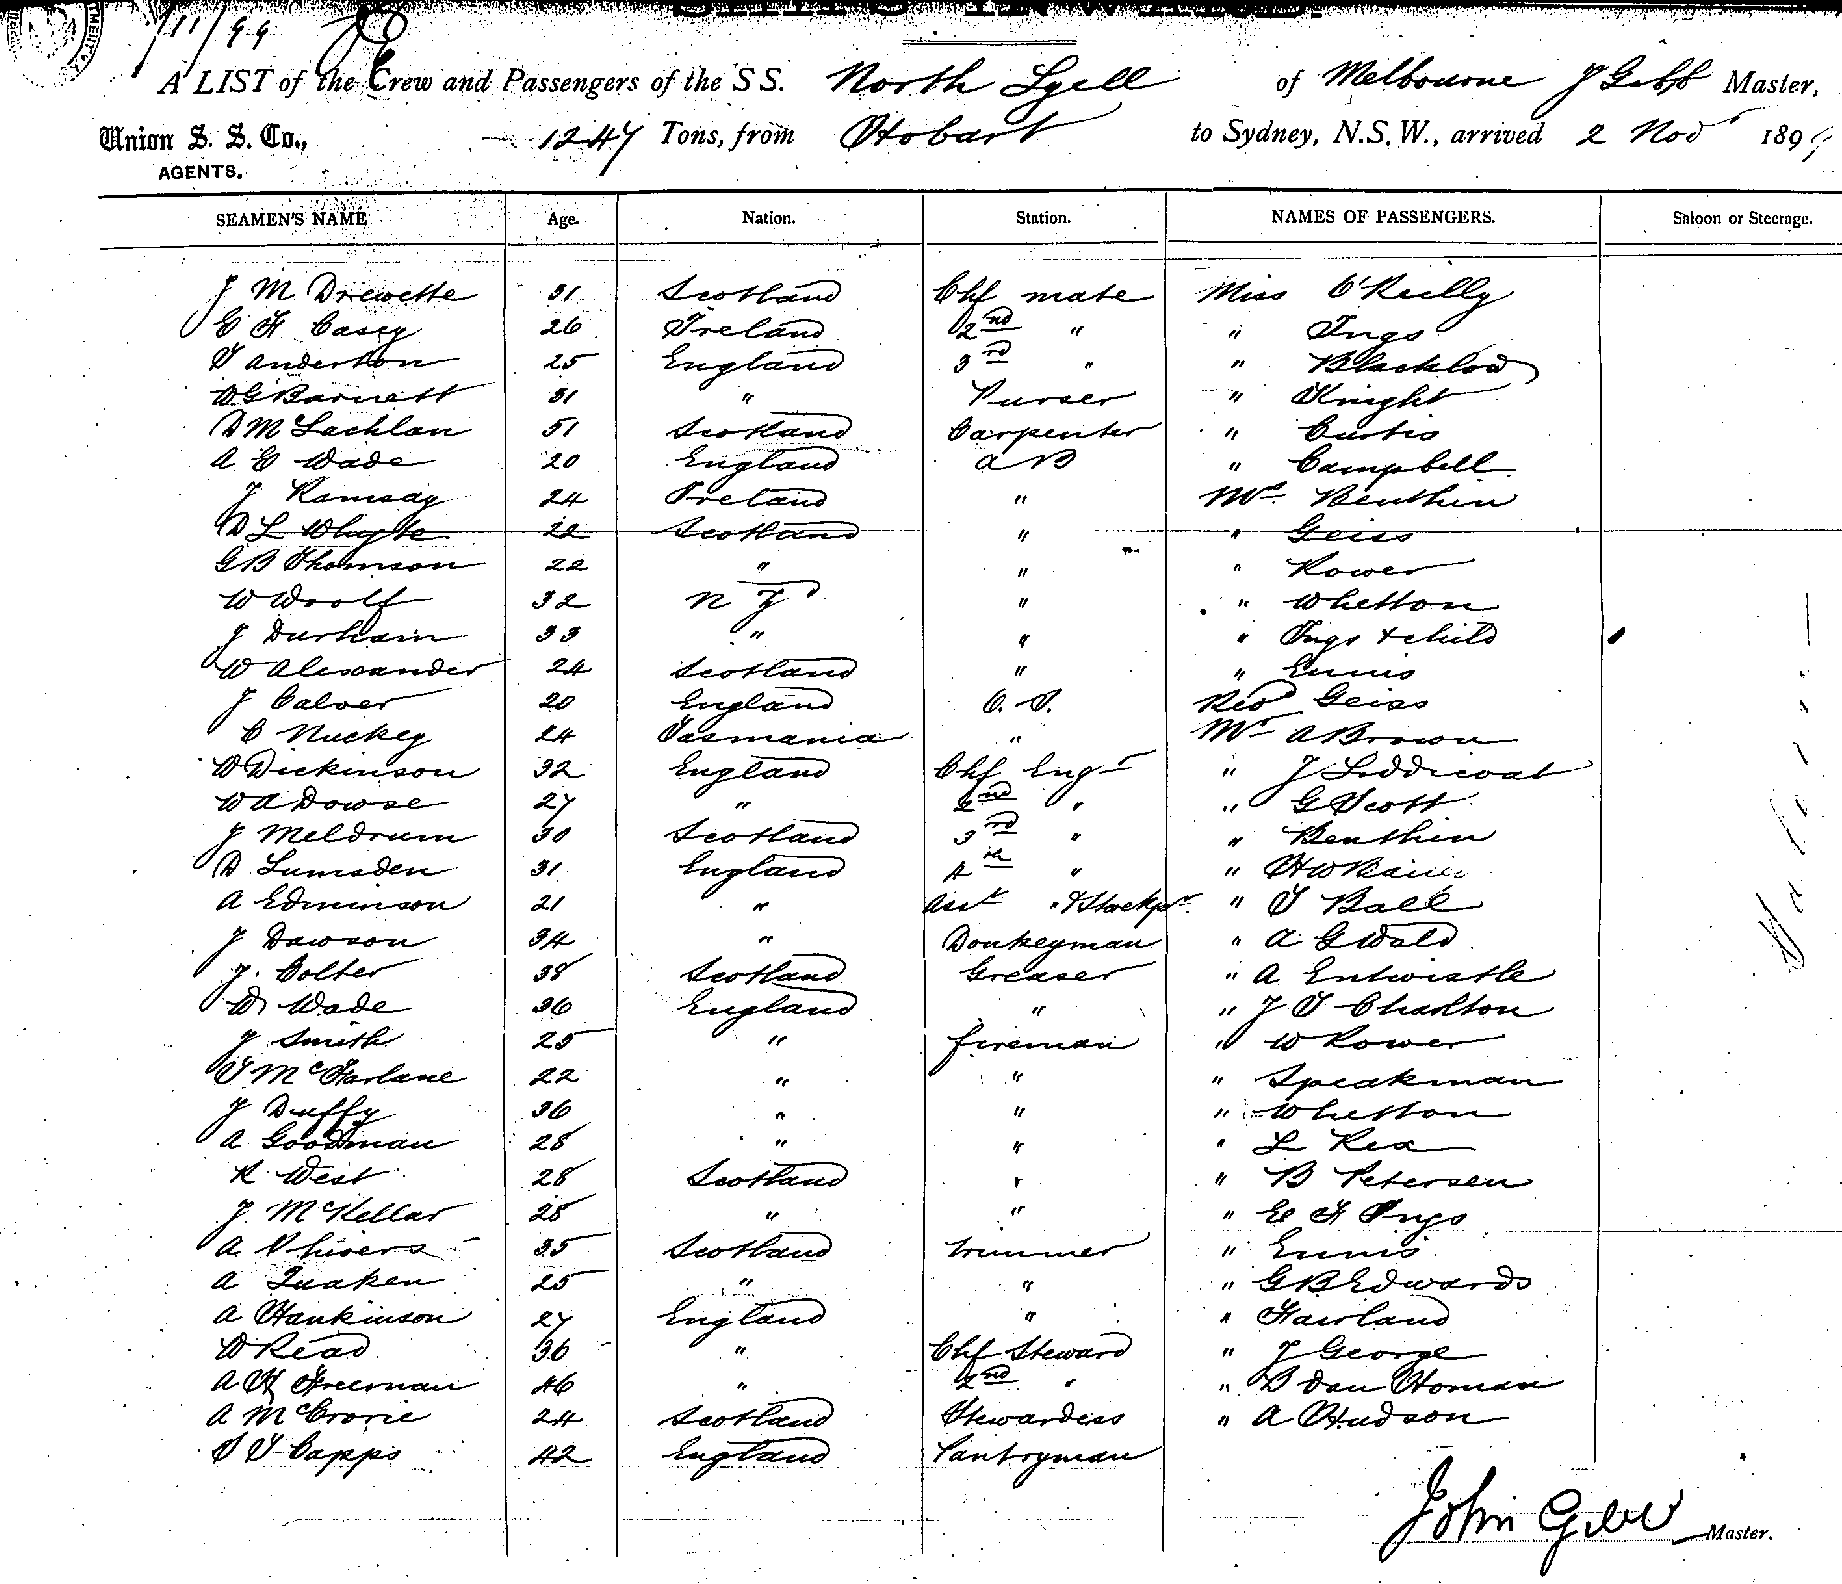 1/11/99
A LIST of the Crew and Passengers of the S S. North Lyell of Melbourne J Gibb Master,
Union S. S. Co., 1247 Tons, from Hobart to Sydney, N.S.W., arrived 2 Nov 1899
AGENTS.
SEAMEN'S NAME Age. Nation. Station. NAMES OF PASSENGERS. Saloon or Steerage.
J M Drewette 31 Scotland Chf mate Miss O'Reilly
C H Casey 26 Ireland 2nd " " Ings
T Anderton 25 England 3rd " " Blacklow
W G Barnett 31 " Purser " Knight
D McLachlan 51 Scotland Carpenter " Curtis
A C Wade 20 England A B " Campbell
J Ramsay 24 Ireland " Mrs Benthin
D L Whyte 22 Scotland " " Geiss
G B Thomson 22 " " " Rower
W Woolf 32 N Zd " " Whetton
J Durham 33 " " " Ings & child
W Alexander 24 Scotland " " Ennis
J Calver 20 England O. S. Revd Geiss
C Nuckey 24 Tasmania " Mr A Brown
W Dickinson 32 England Chf Engr " J Liddicoat
W A Dowse 27 " 2nd " " G Scott
J Meldrum 30 Scotland 3rd " " Benthin
D Lumsden 31 England 4th " " H W
A Edminson 21 " Asst " & Storekpr. " T Ball
J Dawson 34 " Donkeyman " A G Wald
J. Colter 38 Scotland Greaser " A Entwistle
W Wade 36 England " " J T Charlton
J Smith 25 " Fireman " W Rower
T McFarlane 22 " " " Speakman
J Duffy 36 " " " Whetton
A Goodman 28 " " " L Rex
R West 28 Scotland " " B Petersen
J. McKellar 28 " " " E H Ings
A Shivers 35 Scotland Trimmer " Ennis
A Quaken 25 " " " G B Edwards
A Hankinson 27 England " " Hawland
W Read 36 " Chf Steward " J George
A H Freeman 46 " 2nd " " D Van Homan
A McCrorie 24 Scotland Stewardess " A Hudson
S T Capps 42 England Pantryman
John Gibb Master.